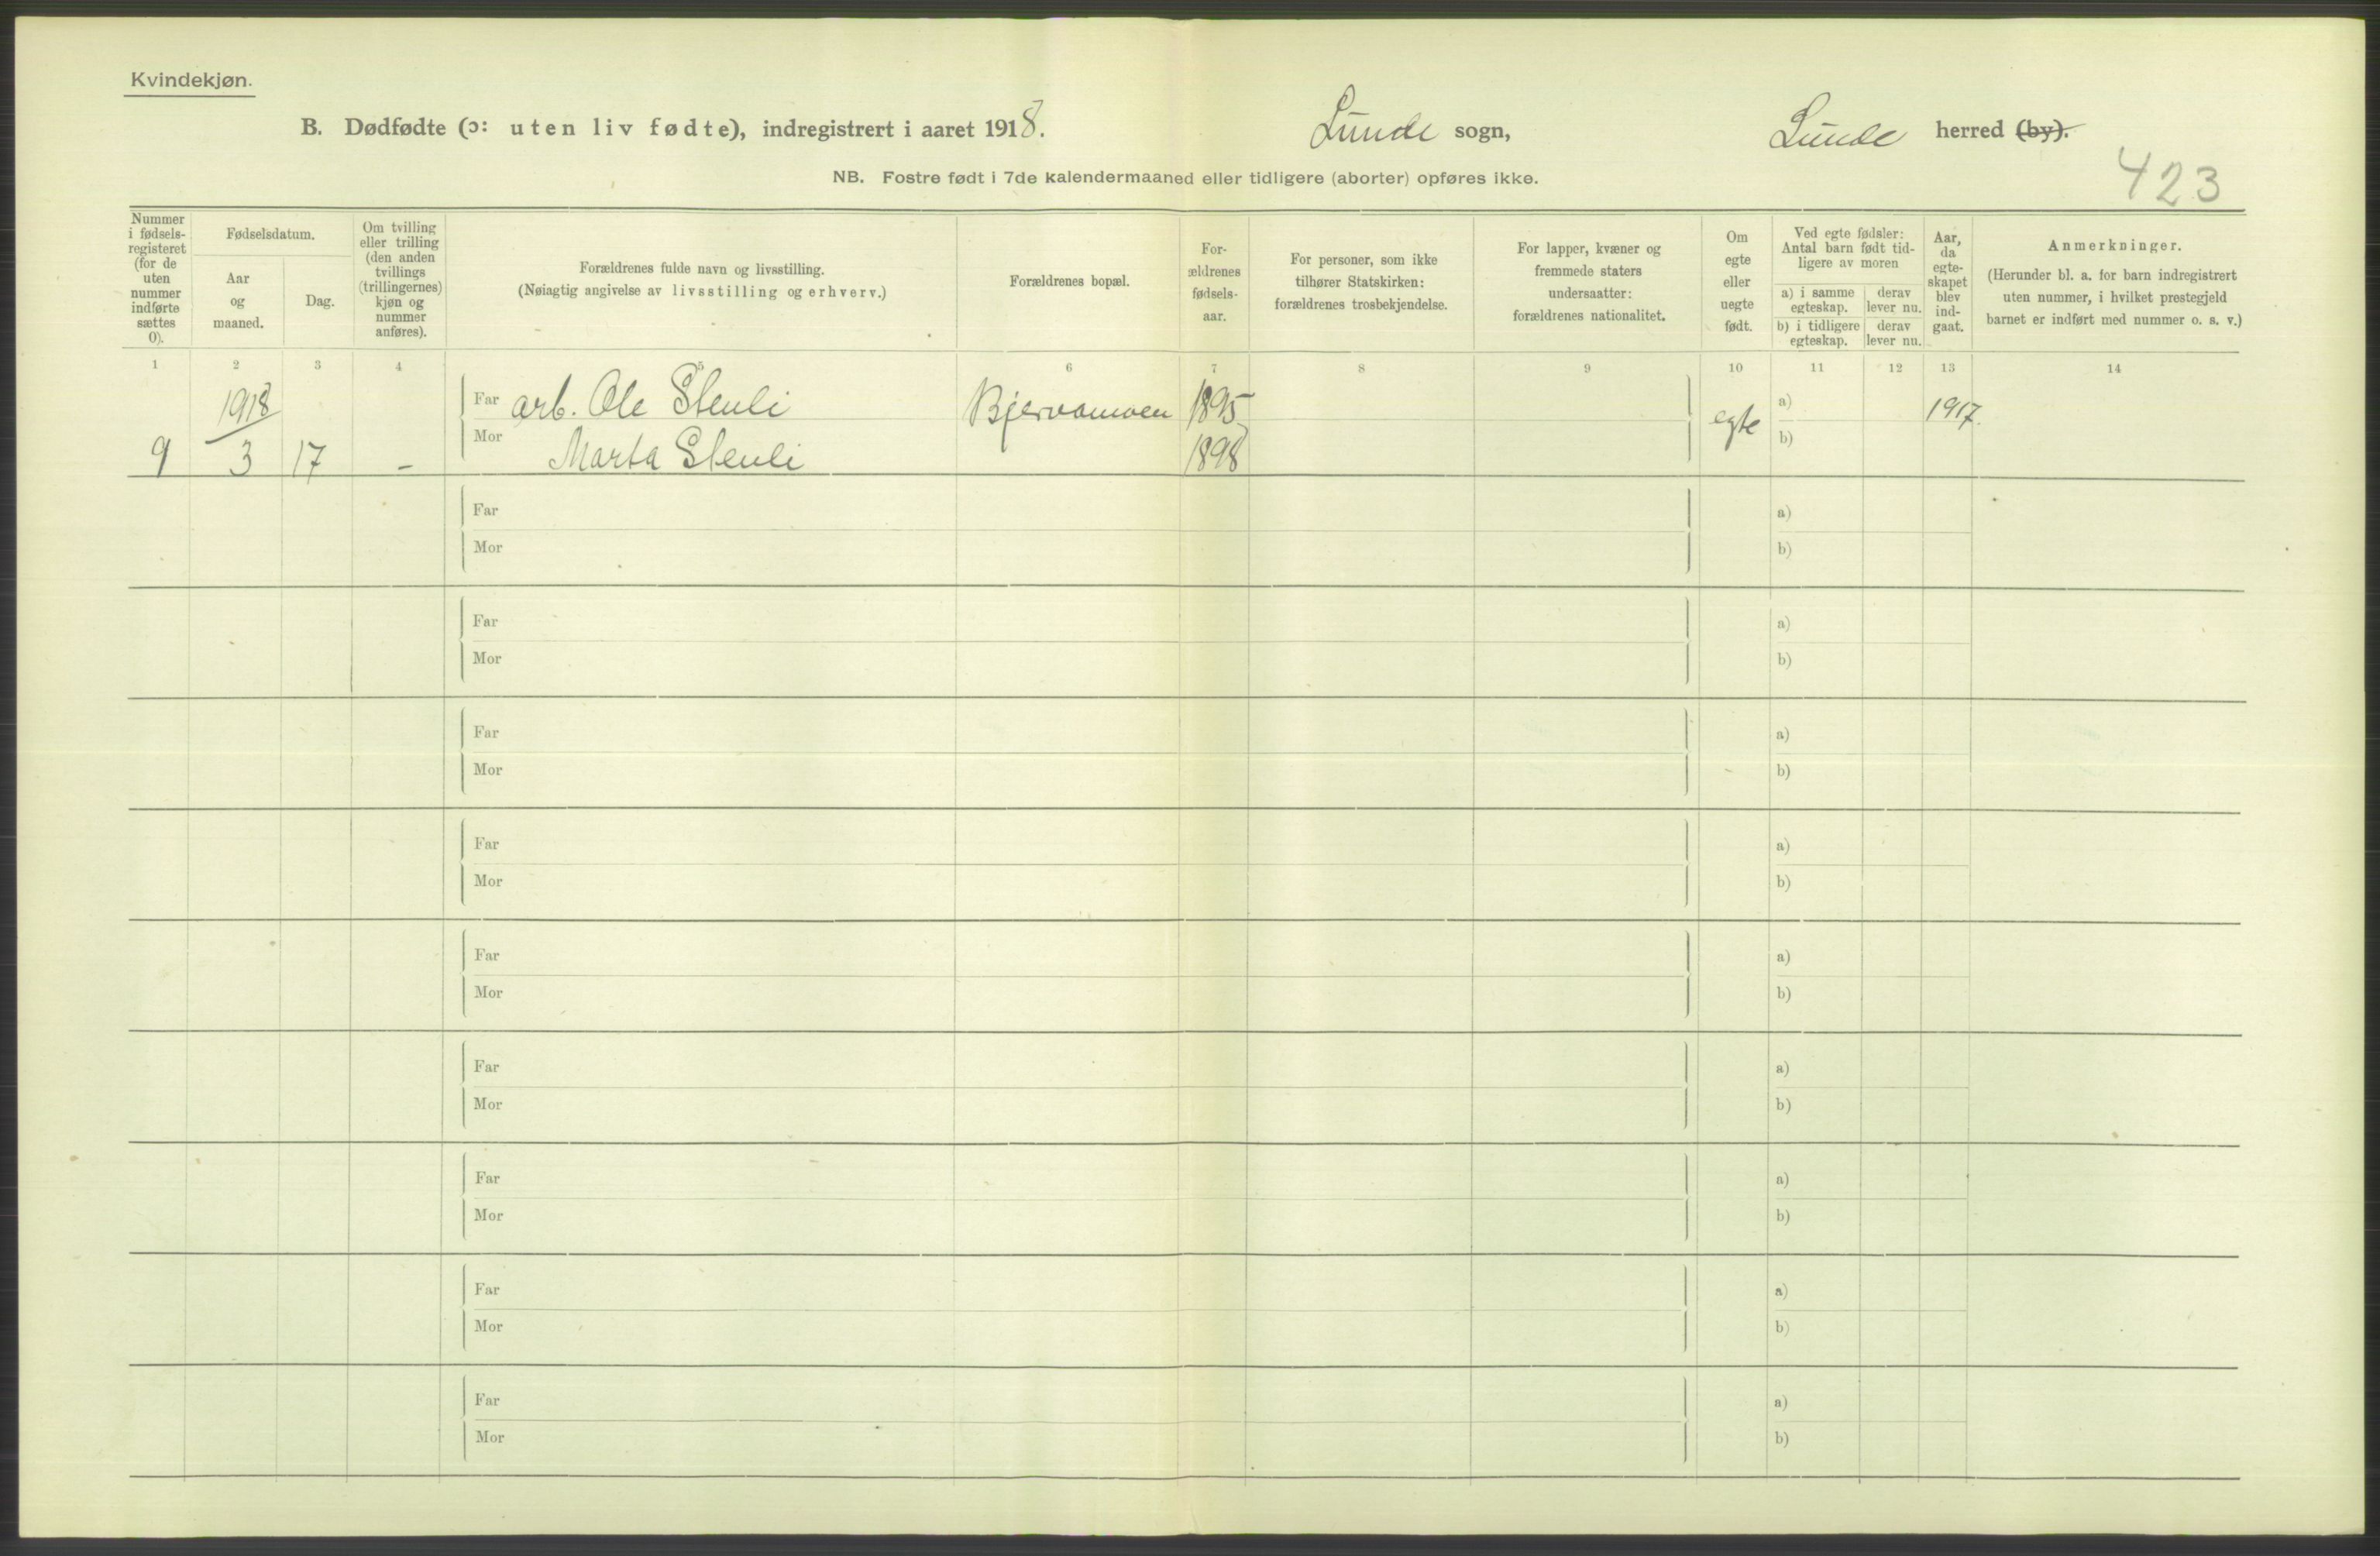 Kvindekjøn.
B. Dødfødte (ɔ: uten liv fødte), indregistrert i aaret 1918. Lunde sogn, Lunde herred (by).
423
NB. Fostre født i 7de kalendermaaned eller tidligere (aborter) opføres ikke.
Nummer i fødsels-registeret (for de uten nummer indførte sættes 0).
Fødselsdatum.
Aar og maaned.
Dag.
Om tvilling eller trilling (den anden tvillings (trillingernes) kjøn og nummer anføres).
Forældrenes fulde navn og livsstilling.
(Nøiagtig angivelse av livsstilling og erhverv.)
Forældrenes bopæl.
For-ældrenes fødsels-aar.
For personer, som ikke tilhører Statskirken: forældrenes trosbekjendelse.
For lapper, kvæner og fremmede staters undersaatter: forældrenes nationalitet.
Om egte eller uegte født.
Ved egte fødsler: Antal barn født tid-ligere av moren
a) i samme egteskap.
derav lever nu.
b) i tidligere egteskap.
derav lever nu.
Aar, da egte-skapet blev ind-gaat.
Anmerkninger.
(Herunder bl. a. for barn indregistrert uten nummer, i hvilket prestegjeld barnet er indført med nummer o. s. v.)
1 2 3 4 5 6 7 8 9 10 11 12 13 14
1918 Far arb. Ole Stenli Bjervamoen 1895 egte a) 1917.
9 3 17 – Mor Marta Stenli 1898 b)
Far a)
Mor b)
Far a)
Mor b)
Far a)
Mor b)
Far a)
Mor b)
Far a)
Mor b)
Far a)
Mor b)
Far a)
Mor b)
Far a)
Mor b)
Far a)
Mor b)